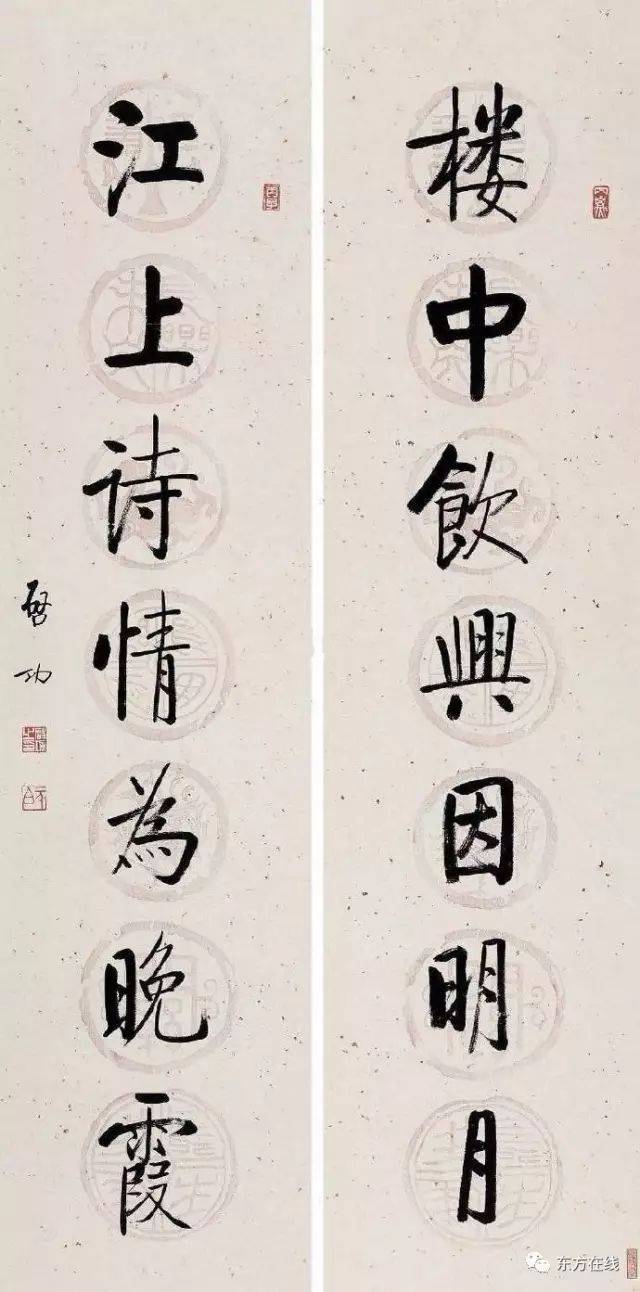 楼中飲興因明月
江上诗情為晚霞
啓功
东方在线